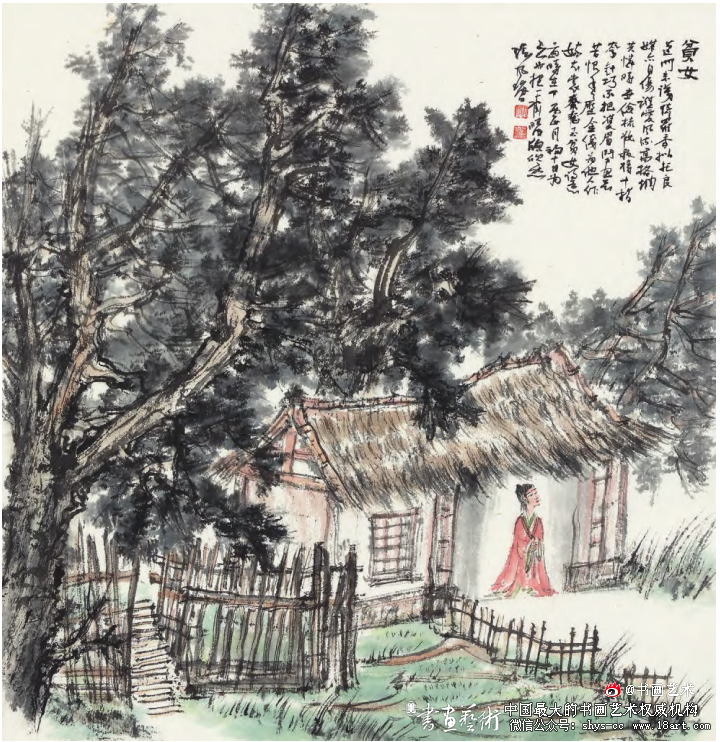 貧女
蓬门未識綺羅香拟托良
媒亦自傷誰愛風流高格調
共憐時世儉梳妝敢將十指
夸針巧不把雙眉鬥畫長
苦恨年年壓金線為他人作
嫁衣裳秦韜玉貧女詩意
@书画艺术
書画藝術
中国最大的书画艺术权威机构
微信公众号：shyscc www.18art.com